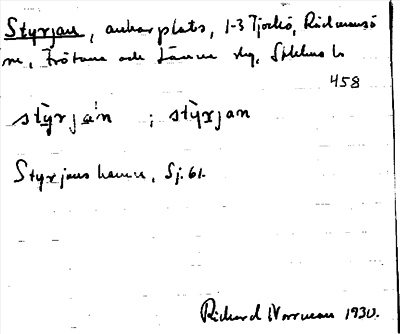 Styrjan, ankarplats, 1-3 Tjockö, Rådmansö
sn, Frötuna och Länna skg, Sthlms l.
458
stỳrján ; stỳrjan
Styrjans hamn, Sj. 61.
Richard Norrman 1930.